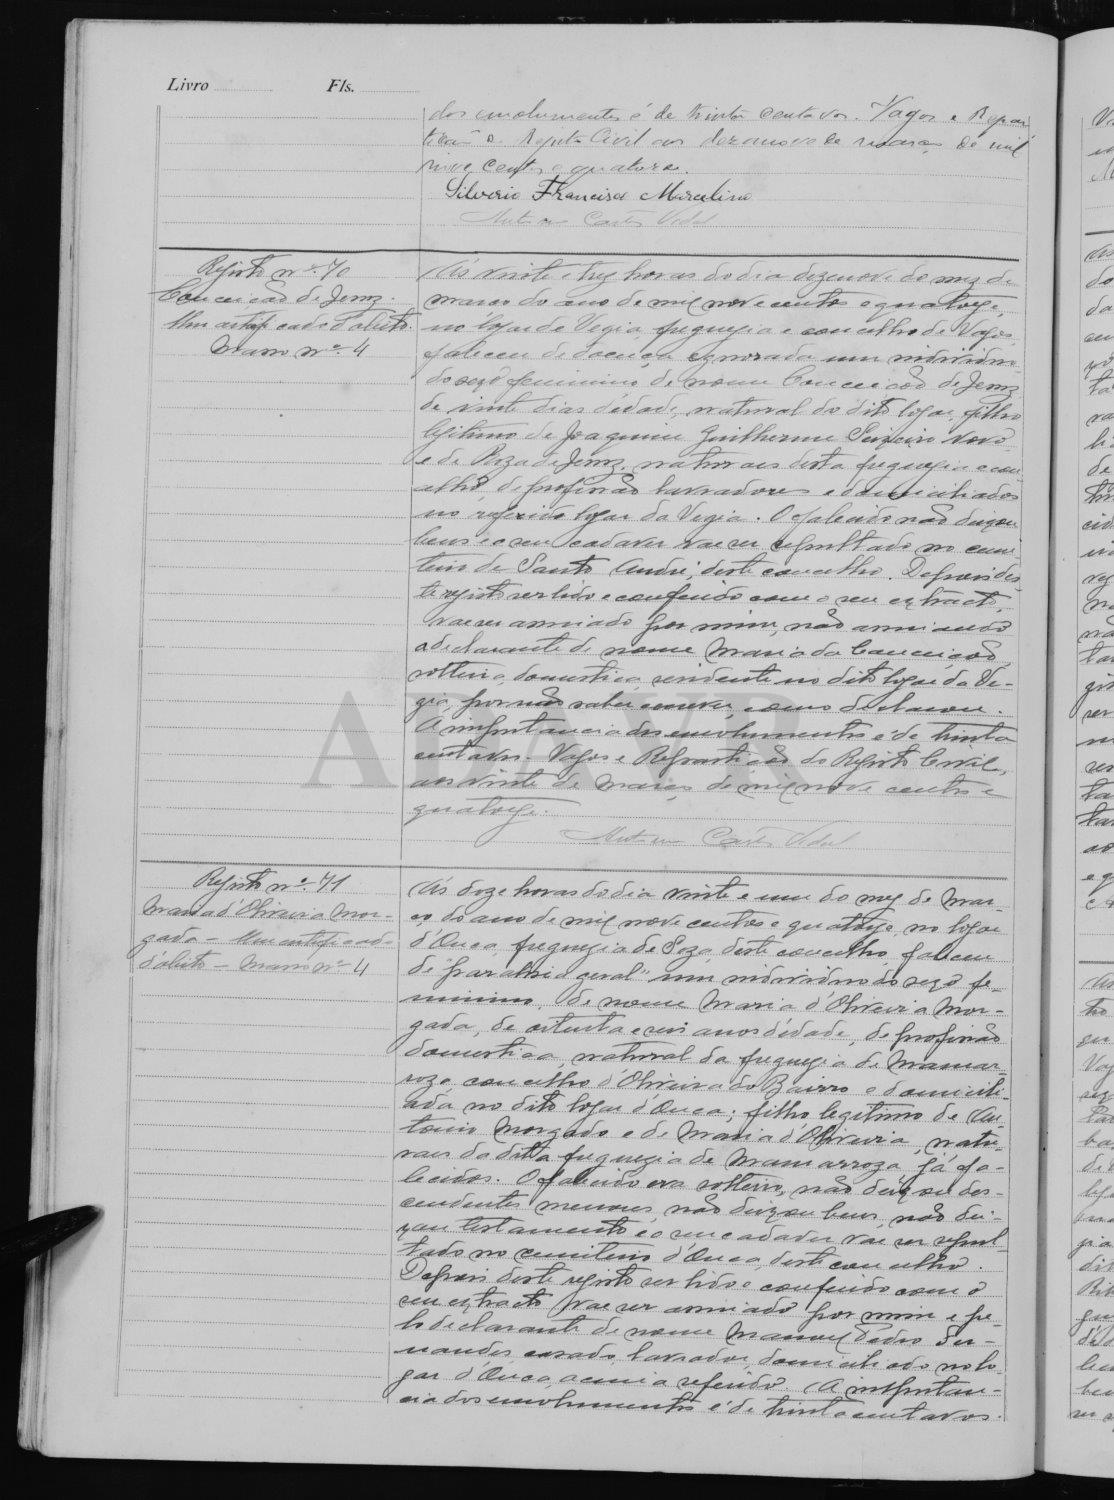 Livro Fls.
dos emolumentos é de trinta centavos. Vagos e Repar-
tição do Registo Civil aos dezanove de março de mil
nove centos e quatorze.
Silverio Francisco Marcelino
Antonio Carlos Vidal
Registo nº 70
Conceição de Jesuz.
Um certificado d'obito.
Maço nº 4
Ás vinte e trez horas do dia dezenove do mez de
março do ano de mil nove centos e quatorze,
no logar de Vegia, freguezia e concelho de Vagos,
faleceu de doença ignorada um individuo
do sexo feminino de nome Conceição de Jesuz
de vinte dias d'edade, natural do dito logar, filho
legitimo de Joaquim Guilherme Novo
e de Roza de Jesuz, naturaes desta freguezia e con-
celho, de profissão lavradores e domiciliados
no referido logar da Vegia. O falecido não deixou
bens e o seu cadaver vae ser sepultado no cemi-
terio de Santo André, deste concelho. Depois des-
te registo ser lido e conferido com o seu extracto,
vae ser assinado por mim, não assinando
a declarante de nome Maria da Conceição,
solteira, domestica, residente no dito logar da Ve-
gia, por não saber escrever, como declarou.
A importancia dos emolumentos é de trinta
centavos. Vagos e Repartição do Registo Civil,
aos vinte de Março de mil nove centos e
quatorze.
Antonio Carlos Vidal
ADAVR
Registo nº 71
Maria d'Oliveira Mor-
gada - Um certificado
d'obito - Maço nº 4
Ás doze horas do dia vinte e um do mez de Mar-
ço, do ano de mil nove centos e quatorze, no logar
d'Ouca, freguezia de Soza, deste concelho, faleceu
de "paralesia geral" um individuo do sexo fe-
minino, de nome Maria d'Oliveira Mor-
gada, de setenta e seis anos d'edade, de profissão
domestica, natural da freguezia de Mamar-
roza, concelho d'Oliveira do Bairro e domicili-
ada no dito logar d'Ouca; filho legitimo de An-
tonio Morgado e de Maria d'Oliveira, natu-
raes da dita freguezia de Mamarroza, já fa-
lecidos. O falecido era solteiro, não deixou des-
cendentes menores, não deixou bens, não dei-
xou testamento e o seu cadaver vae ser sepul-
tado no cemiterio d'Ouca, deste concelho.
Depois deste registo ser lido e conferido com o
seu extracto vae ser assinado por mim e pe-
lo declarante de nome Manoel Pedro Fer-
nandes, casado, lavrador, domiciliado no lo-
gar d'Ouca, acima referido. A importan-
cia dos emolumentos é de trinta centavos.